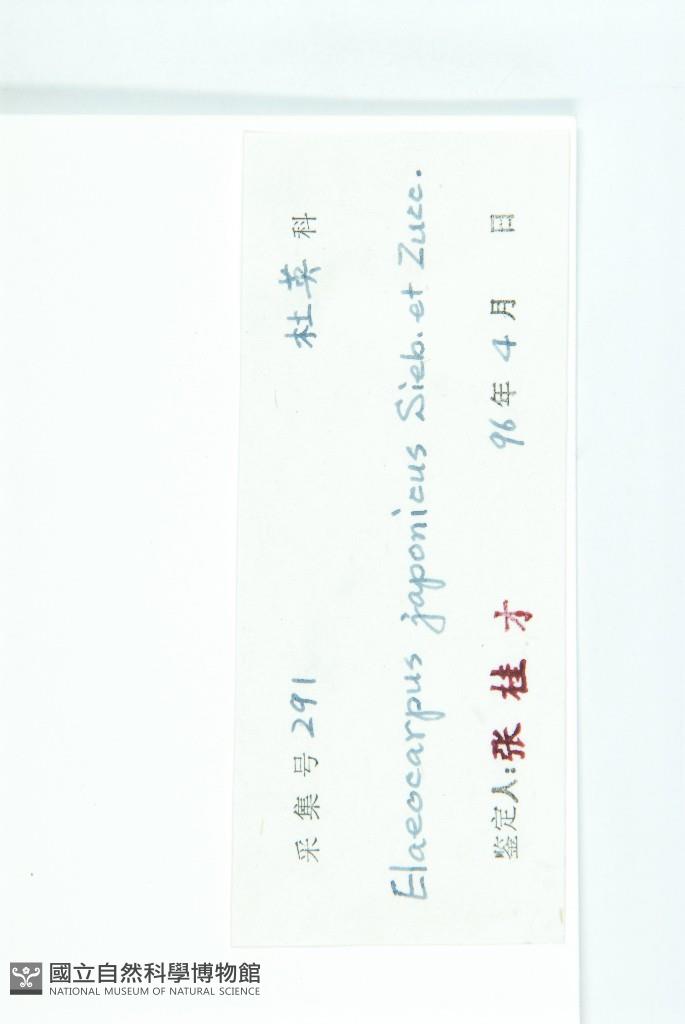 采集号 291 杜英 科
Elaeocarpus japonicus Sieb. et Zucc.
鉴定人: 张桂才 96 年 4 月 日
國立自然科學博物館
NATIONAL MUSEUM OF NATURAL SCIENCE